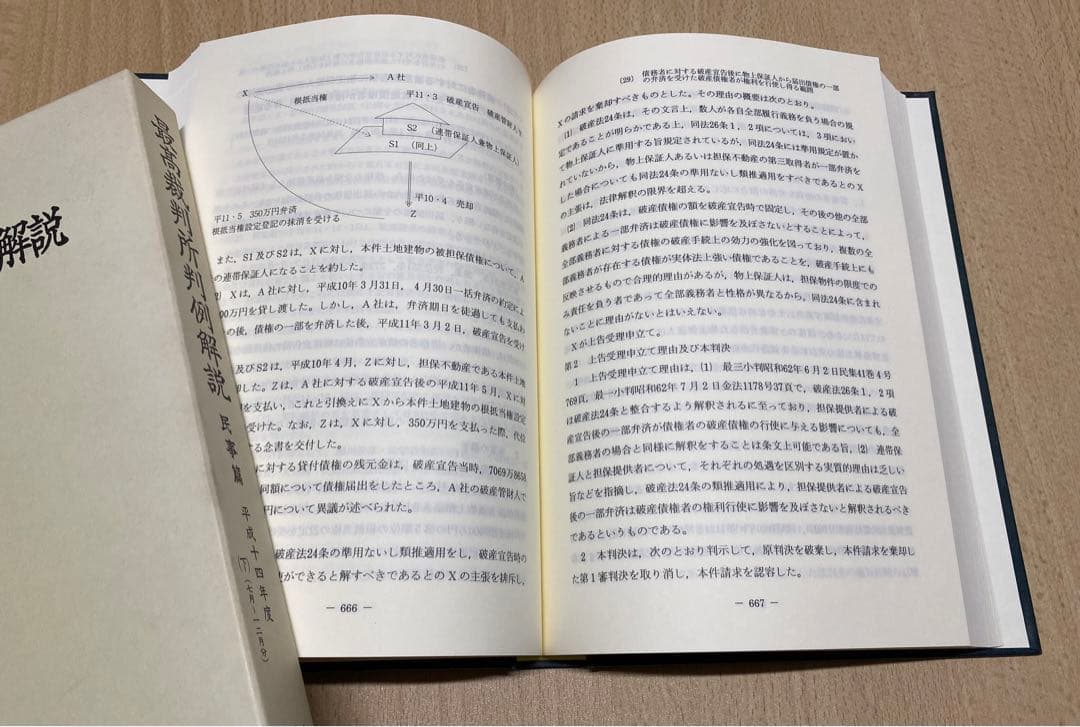 解説
最高裁判所判例解説 民事篇 平成十四年度(下)(七月〜一二月分)
A社
X
根抵当権
平11・3 破産宣告 破産管財人Y
S2 (連帯保証人兼物上保証人)
S1 (同上)
平10・4 売却
Z
平11・5 350万円弁済
根抵当権設定登記の抹消を受ける
また,S1及びS2は,Xに対し,本件土地建物の被担保債権について,A
の連帯保証人になることを約した。
(2) Xは,A社に対し,平成10年3月31日,4月30日一括弁済の約定により
00万円を貸し渡した。しかし,A社は,弁済期日を徒過しても支払わ
の後,債権の一部を弁済した後,平成11年3月2日,破産宣告を受け
及びS2は,平成10年4月,Zに対し,担保不動産である本件土地
却した。Zは,A社に対する破産宣告後の平成11年5月,Xに対
円を支払い,これと引換えにXから本件土地建物の根抵当権設定
受けた。なお,Zは,Xに対し,350万円を支払った際,代位
する念書を交付した。
に対する貸付債権の残元金は,破産宣告当時,7069万8658
同額について債権届出をしたところ,A社の破産管財人で
円について異議が述べられた。
破産法24条の準用ないし類推適用をし,破産宣告時の
ができると解すべきであるとのXの主張を排斥し,
― 666 ―
〔29〕 債務者に対する破産宣告後に物上保証人から届出債権の一部
の弁済を受けた破産債権者が権利を行使し得る範囲
Xの請求を棄却すべきものとした。その理由の概要は次のとおり。
(1) 破産法24条は,その文言上,数人が各自全部履行義務を負う場合の規
定であることが明らかである上,同法26条1,2項については,3項におい
て物上保証人に準用する旨規定されているが,同法24条には準用規定が置か
れていないから,物上保証人あるいは担保不動産の第三取得者が一部弁済を
した場合についても同法24条の準用ないし類推適用をすべきであるとのX
の主張は,法律解釈の限界を超える。
(2) 同法24条は,破産債権の額を破産宣告時で固定し,その後の他の全部
義務者による一部弁済は破産債権に影響を及ぼさないとすることによって,
全部義務者に対する債権の破産手続上の効力の強化を図っており,複数の全
部義務者が存在する債権が実体法上強い債権であることを,破産手続上にも
反映させるもので合理的理由があるが,物上保証人は,担保物件の限度での
み責任を負う者であって全部義務者と性格が異なるから,同法24条に含まれ
ないことに理由がないとはいえない。
Xが上告受理申立て。
第2 上告受理申立て理由及び本判決
1 上告受理申立て理由は,(1) 最三小判昭和62年6月2日民集41巻4号
769頁,最一小判昭和62年7月2日金法1178号37頁で,破産法26条1,2項
は破産法24条と整合するよう解釈されるに至っており,担保提供者による破
産宣告後の一部弁済が債権者の破産債権の行使に与える影響についても,全
部義務者の場合と同様に解釈をすることは条文上可能である旨,(2) 連帯保
証人と担保提供者について,それぞれの処遇を区別する実質的理由は乏しい
旨などを指摘し,破産法24条の類推適用により,担保提供者による破産宣告
後の一部弁済は破産債権者の権利行使に影響を及ぼさないと解釈されるべき
であるというものである。
2 本判決は,次のとおり判示して,原判決を破棄し,本件請求を棄却し
た第1審判決を取り消し,本件請求を認容した。
― 667 ―